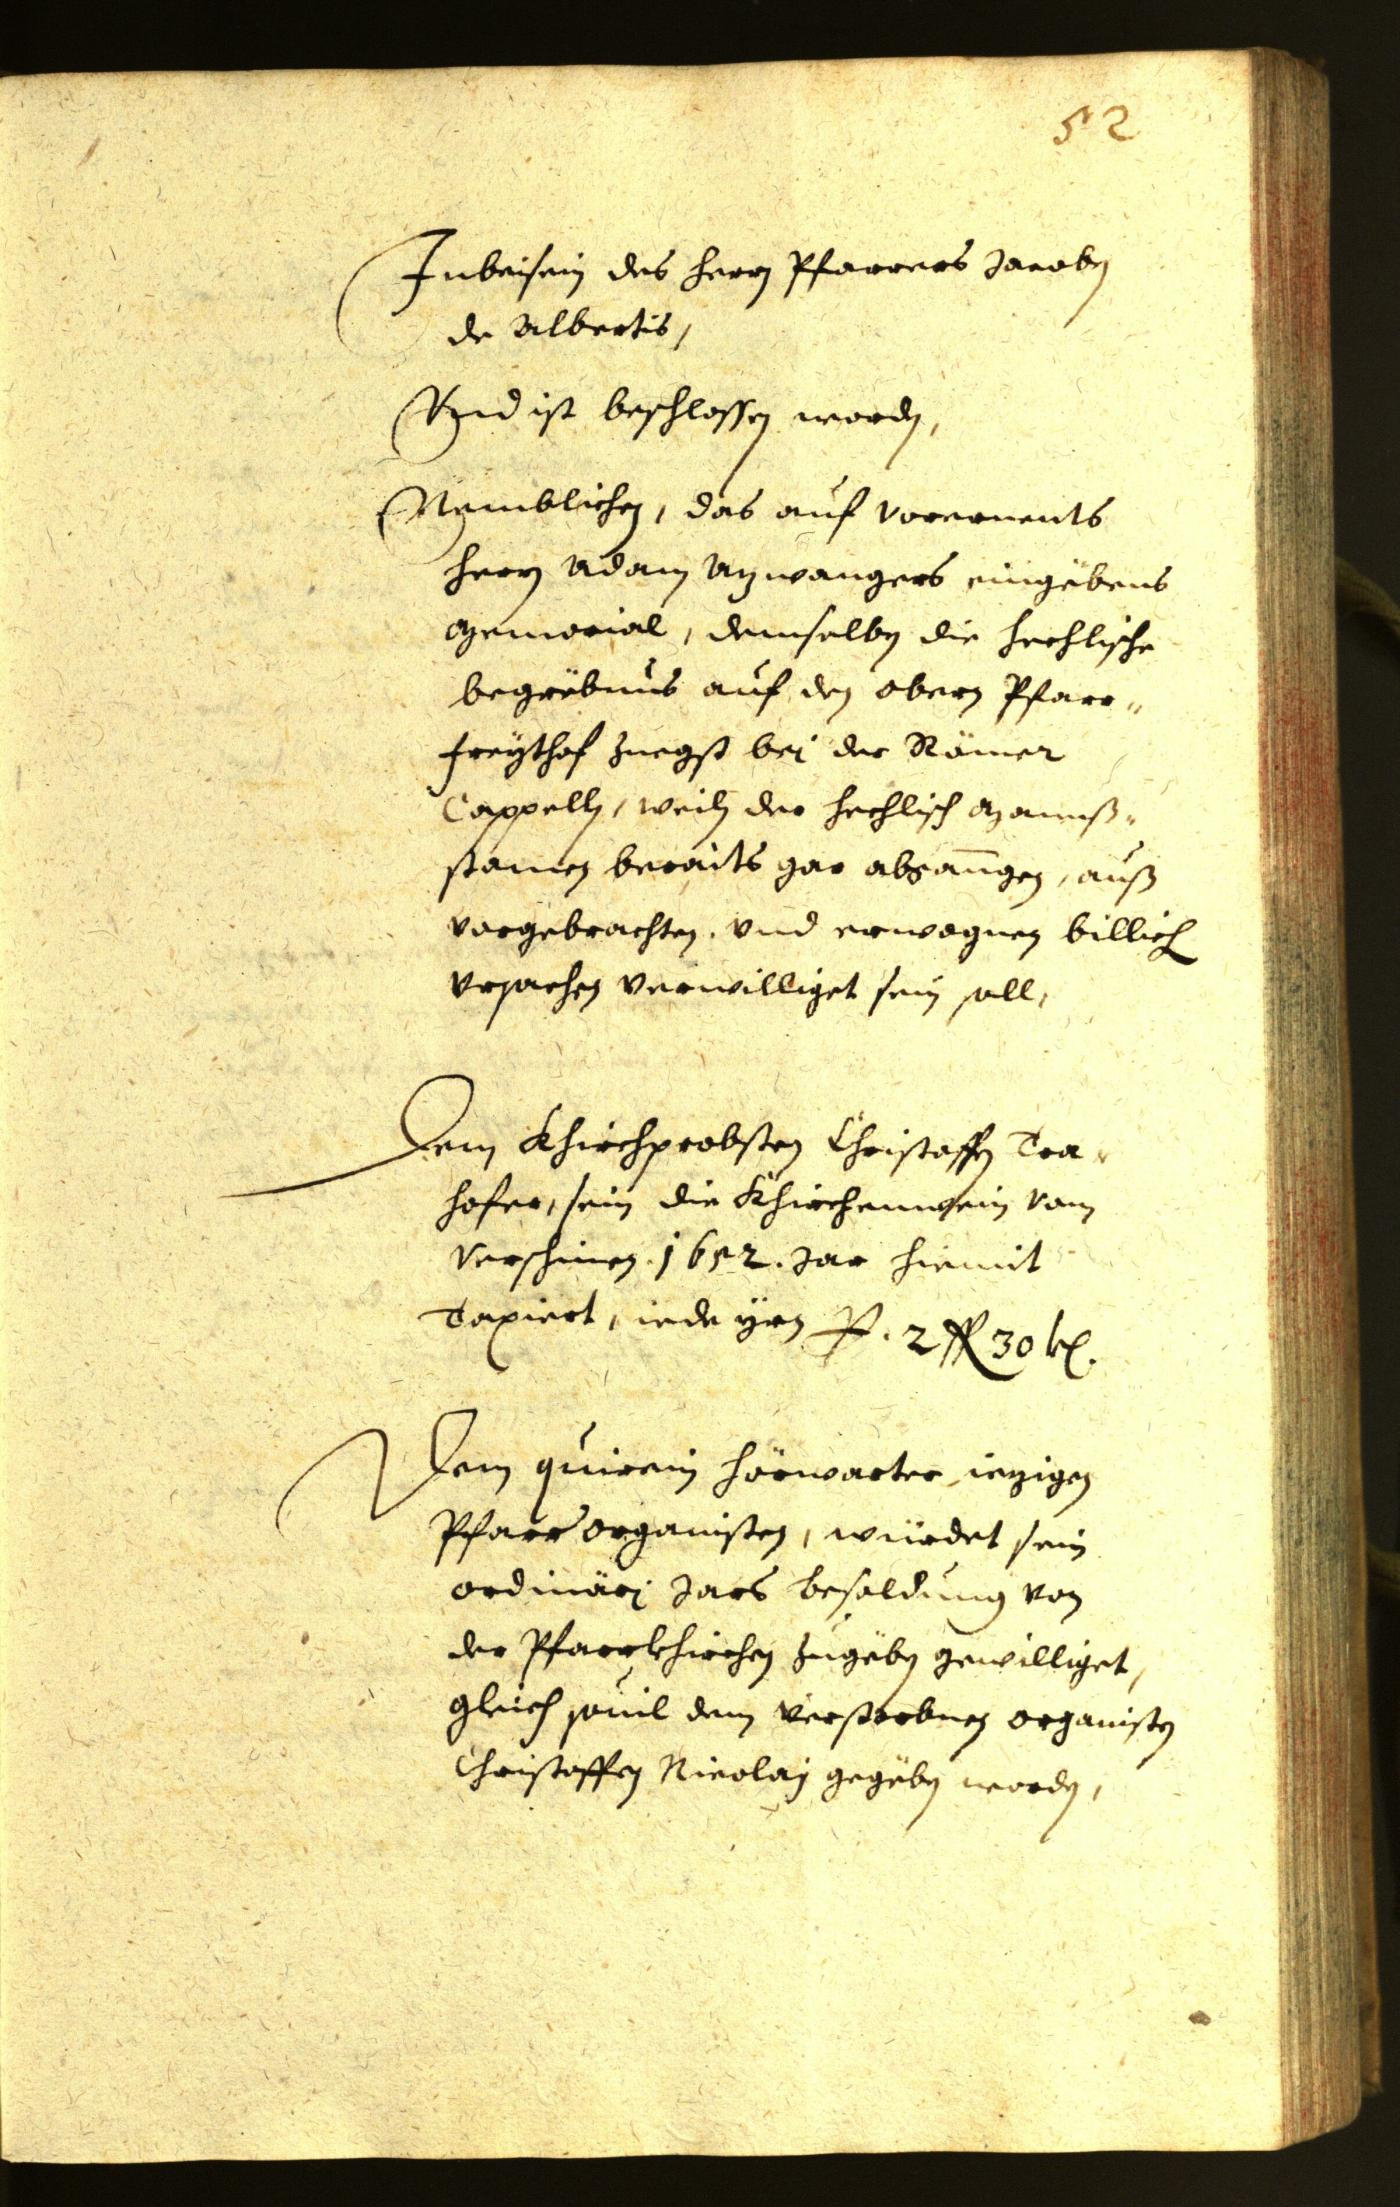 52
Inbeisein des herrn Pfarrers Jacoben
de Albertis,
Vnd ist beschlossen worden,
Nemblichen, das auf vorernents
herrn Adam Azwangers eingebens
Memorial, demselben die hechlische
begrëbnus auf den obern Pfarr„
freÿthof znegst bej der Römer
Cappelln, weiln der hechlisch Manß„
stamen beraits gar abgangen, auß
vorgebrachten, vnd erwegnen billich
vrsachen verwilliget sein soll,
Dem Khirchprobsten Christoffen Tra„
hofer, sein die Khirchenwein vom
verschinen .1652. Jar hiemit
Taxiert, iede ÿrn P. 2 fl 30 kr.
Dem quirein hörwarter, iezigen
Pfarr organisten, würdet sein
ordinäri Jars besoldung von
der Pfarrkhirchen zugëben gewilliget,
gleich souil dem verstorbnen organisten
Christoffen Nicolaj gegëben worden,